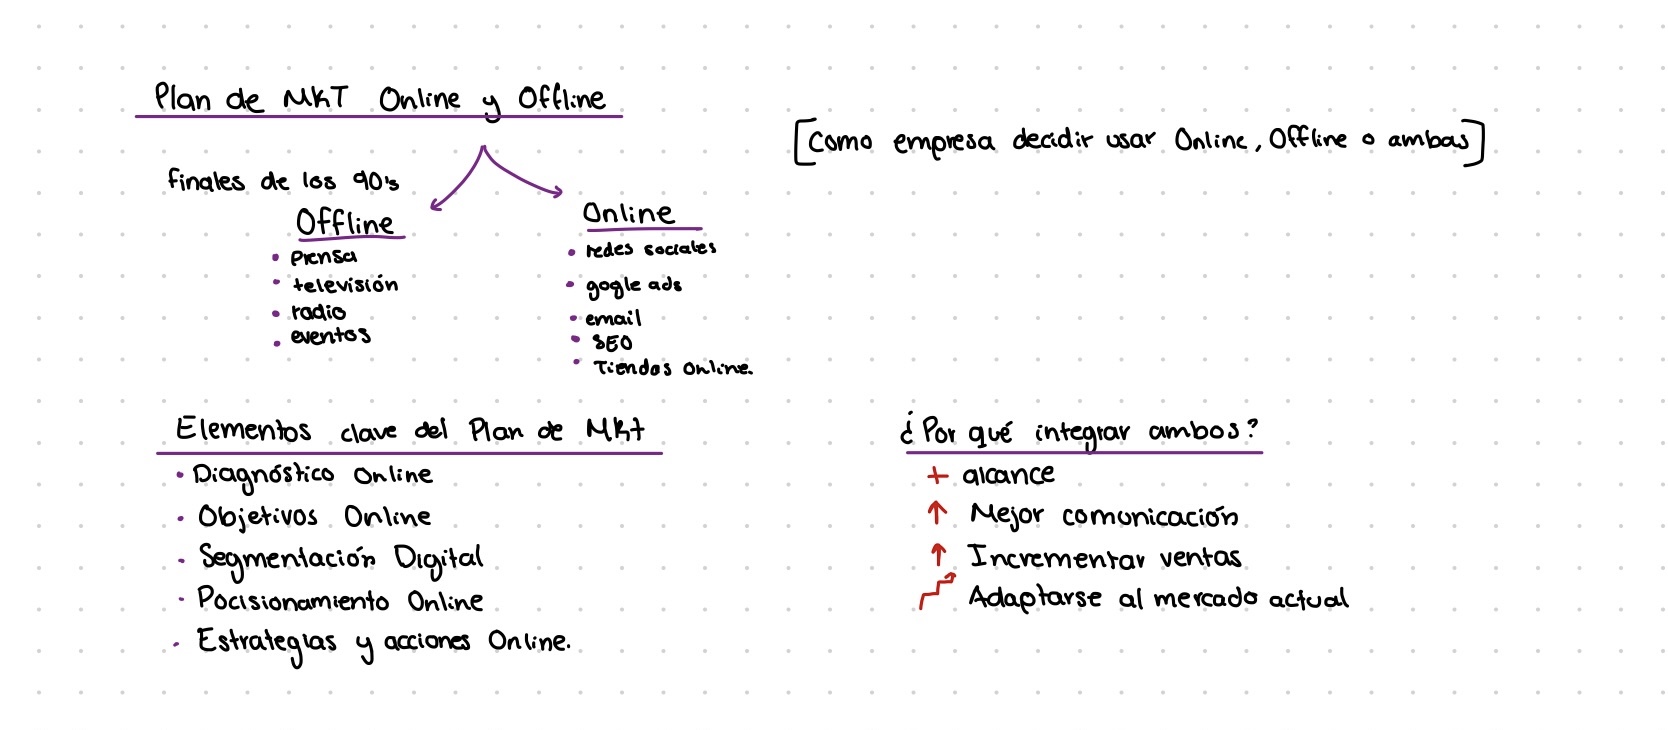 Plan de MKT Online y Offline
[Como empresa decidir usar Online, Offline o ambas]
finales de los 90's
Offline
• prensa
• televisión
• radio
• eventos
Online
• redes sociales
• gogle ads
• email
• SEO
• Tiendas Online.
Elementos clave del Plan de Mkt
• Diagnóstico Online
• Objetivos Online
• Segmentación Digital
• Pocisionamiento Online
• Estrategias y acciones Online.
¿Por qué integrar ambos?
+ alcance
↑ Mejor comunicación
↑ Incrementar ventas
Adaptarse al mercado actual